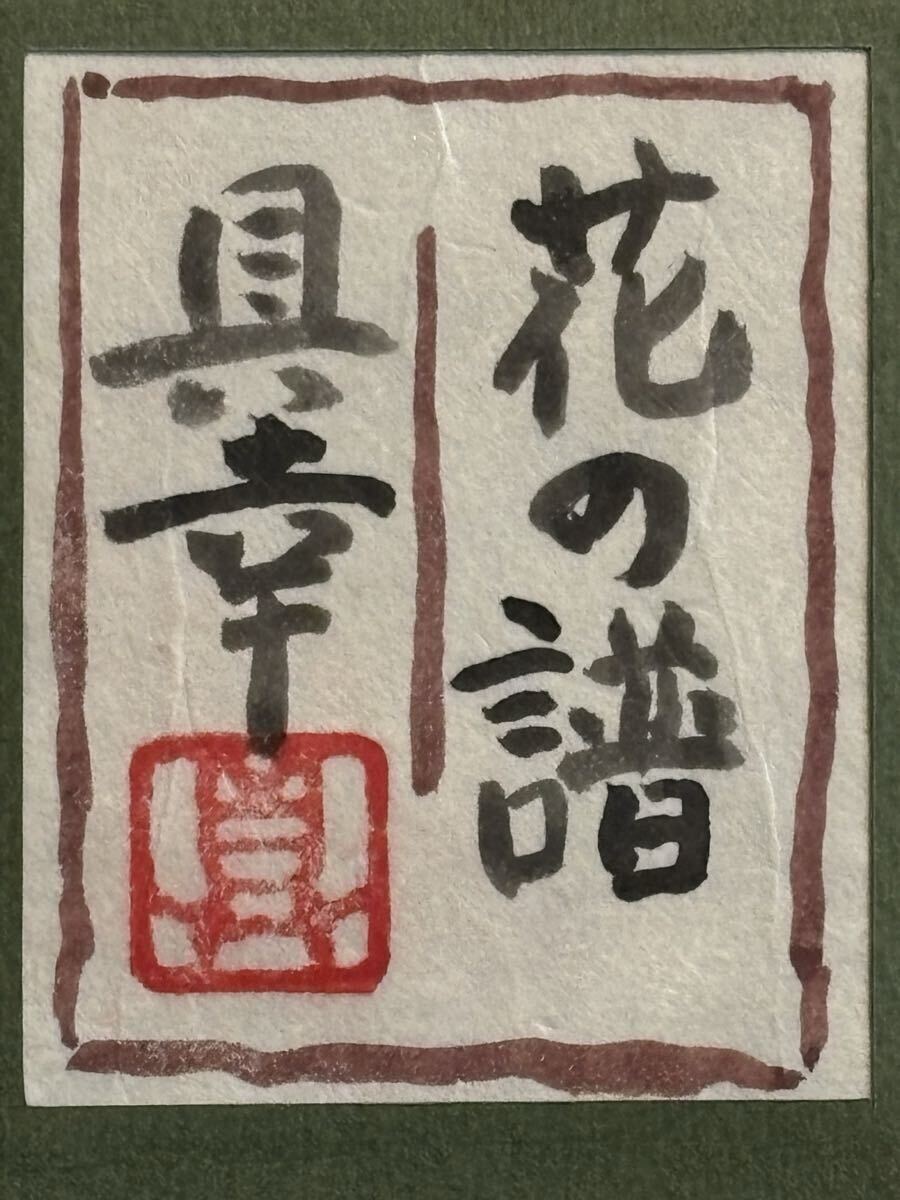 花の譜
具幸